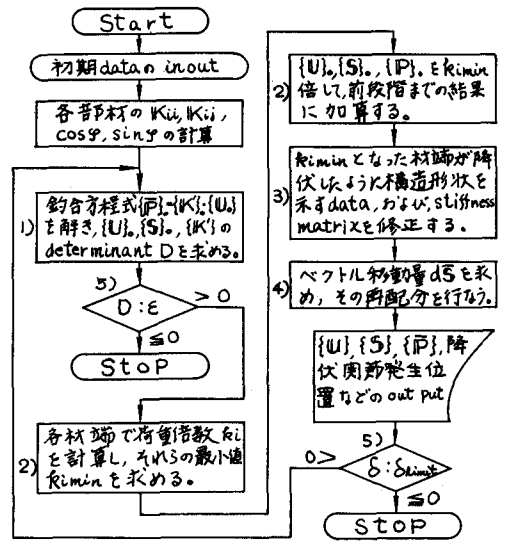 Start
初期dataのinout
各部材の𝕂ii,𝕂ij,
cosφ, sinφの計算
1)
釣合方程式{ℙ}ₒ={𝕂}·{𝕌ₒ}
を解き,{𝕌}ₒ,{𝕊}ₒ,{𝕂}の
determinant Dを求める。
5)
D:ε
>0
≦0
Stop
2)
各材端で荷重倍数ki
を計算し,それらの最小値
kiminを求める。
2)
{𝕌}ₒ,{𝕊}ₒ,{ℙ}ₒをkimin
倍して,前段階までの結果
に加算する。
3)
kiminとなった材端が降
伏したように構造形状を
示すdata,および,stiffness
matrixを修正する。
4)
ベクトル移動量dSを求
め,その再配分を行なう。
{𝕌},{𝕊},{ℙ},降
伏関節発生位
置などのout put
5)
0>
δ:δlimit
≦0
STOP